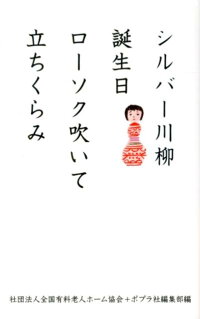 シルバー川柳
誕生日
ローソク吹いて
立ちくらみ
社団法人全国有料老人ホーム協会+ポプラ社編集部編